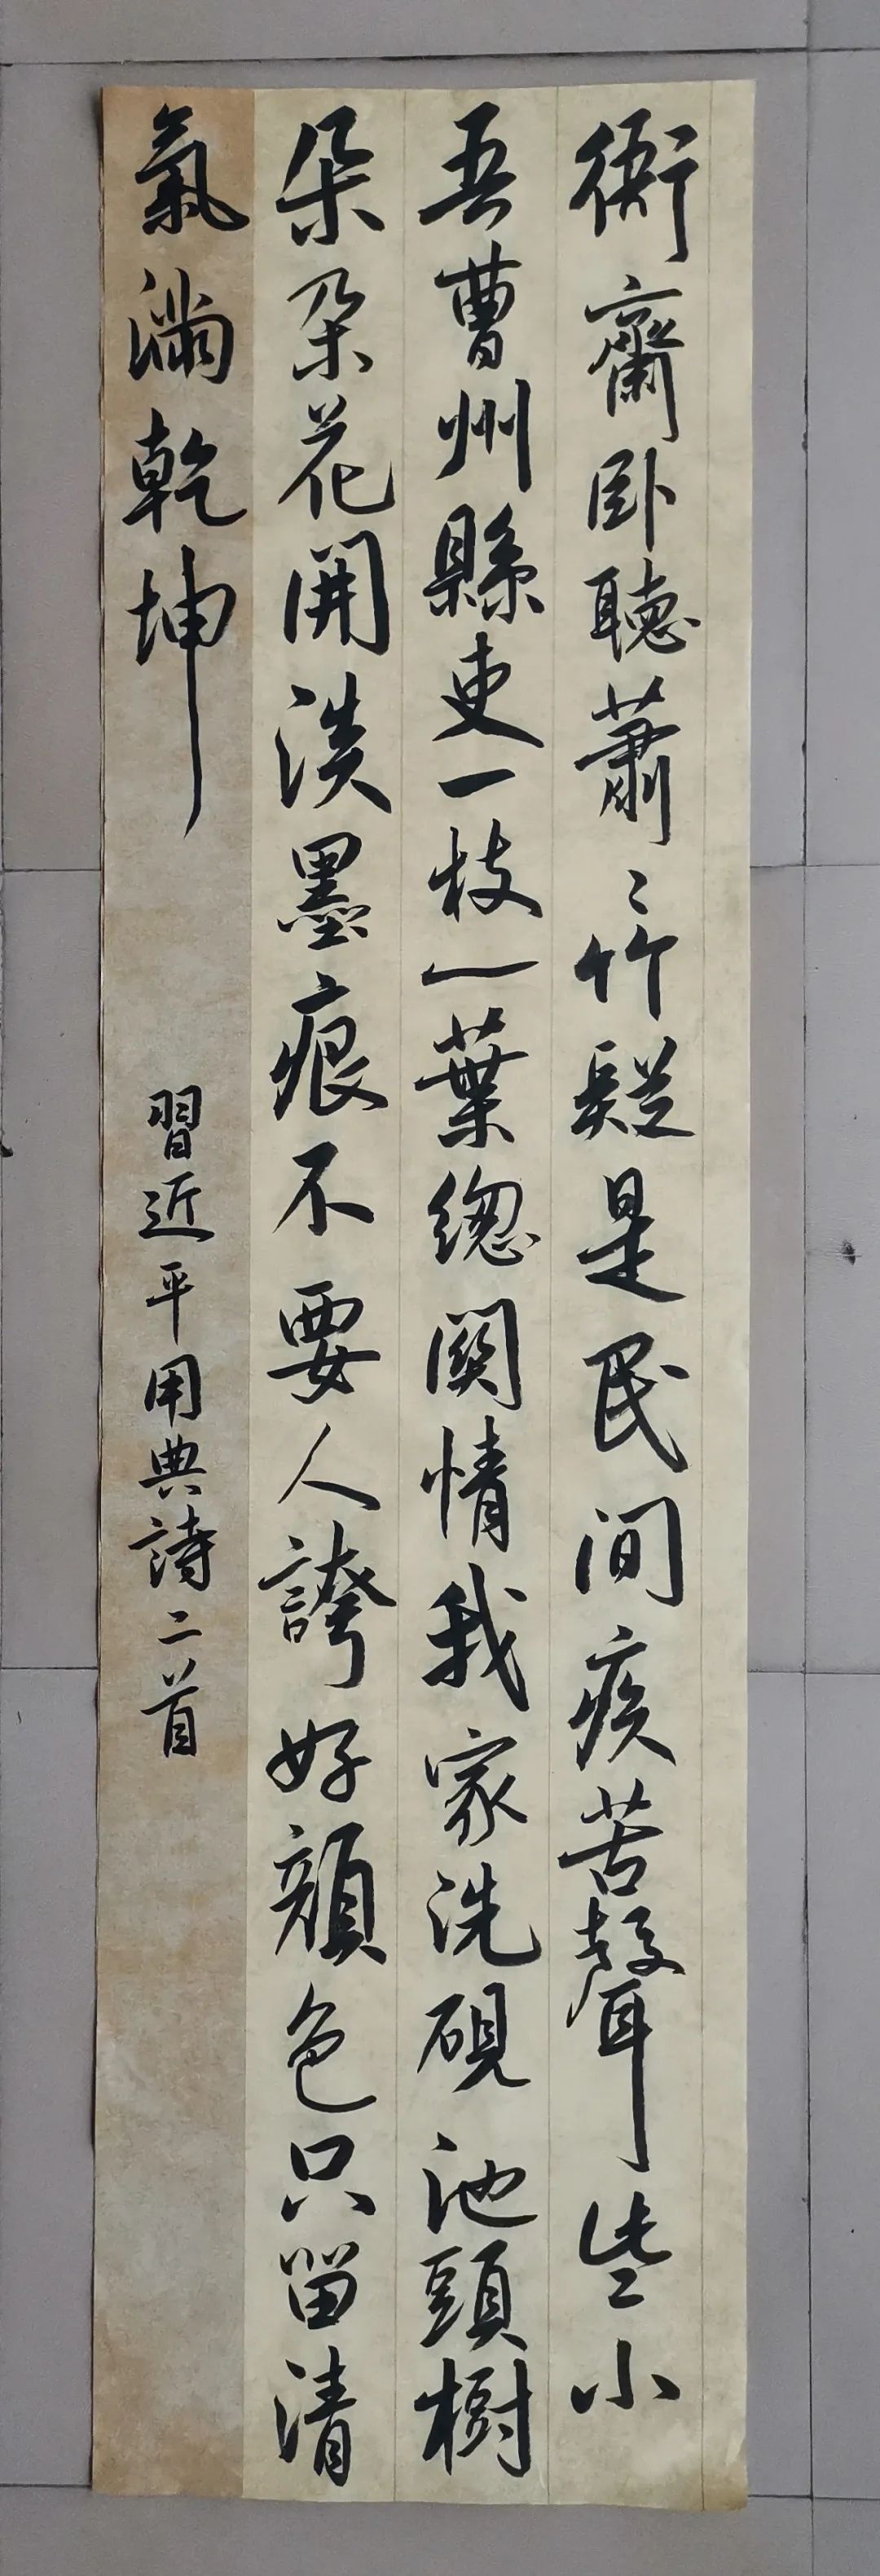 衙齋卧聽蕭〻竹疑是民间疾苦聲些小
吾曹州縣吏一枝一葉總關情我家洗硯池頭樹
朵朵花開淡墨痕不要人誇好顏色只留清
氣滿乾坤
習近平用典詩二首